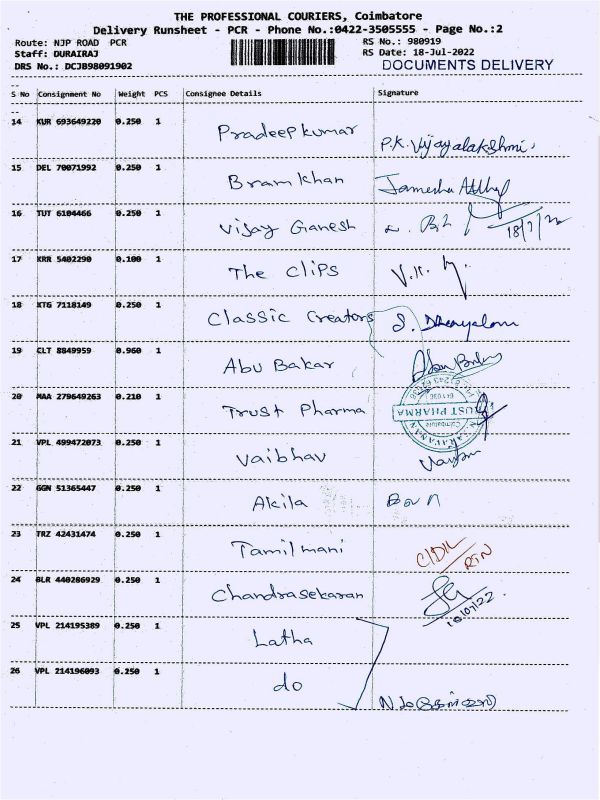 THE PROFESSIONAL COURIERS, Coimbatore
Delivery Runsheet - PCR - Phone No.:0422-3505555 - Page No.:2
Route: NJP ROAD PCR RS No.: 980919
Staff: DURAIRAJ RS Date: 18-Jul-2022
DRS No.: DCJB98091902 DOCUMENTS DELIVERY
S No Consignment No Weight PCS Consignee Details Signature
14 KUR 693649220 0.250 1 Pradeep kumar P.K. Vijayalakshmi
15 DEL 70071992 0.250 1 Bramkhan
16 TUT 6104466 0.250 1 Vijay Ganesh 18/7/22
17 KRR 5402290 0.100 1 The Clips
18 KTG 7118149 0.250 1 Classic Creators
19 CLT 8849959 0.960 1 Abu Bakar
20 MAA 279649263 0.210 1 Trust Pharma
TRUST PHARMA
Coimbatore
21 VPL 499472073 0.250 1 Vaibhav
22 GGN 51365447 0.250 1 Akila
23 TRZ 42431474 0.250 1 Tamilmani
RTN
24 BLR 440286929 0.250 1 Chandrasekaran
25 VPL 214195389 0.250 1 Latha
26 VPL 214196093 0.250 1 do